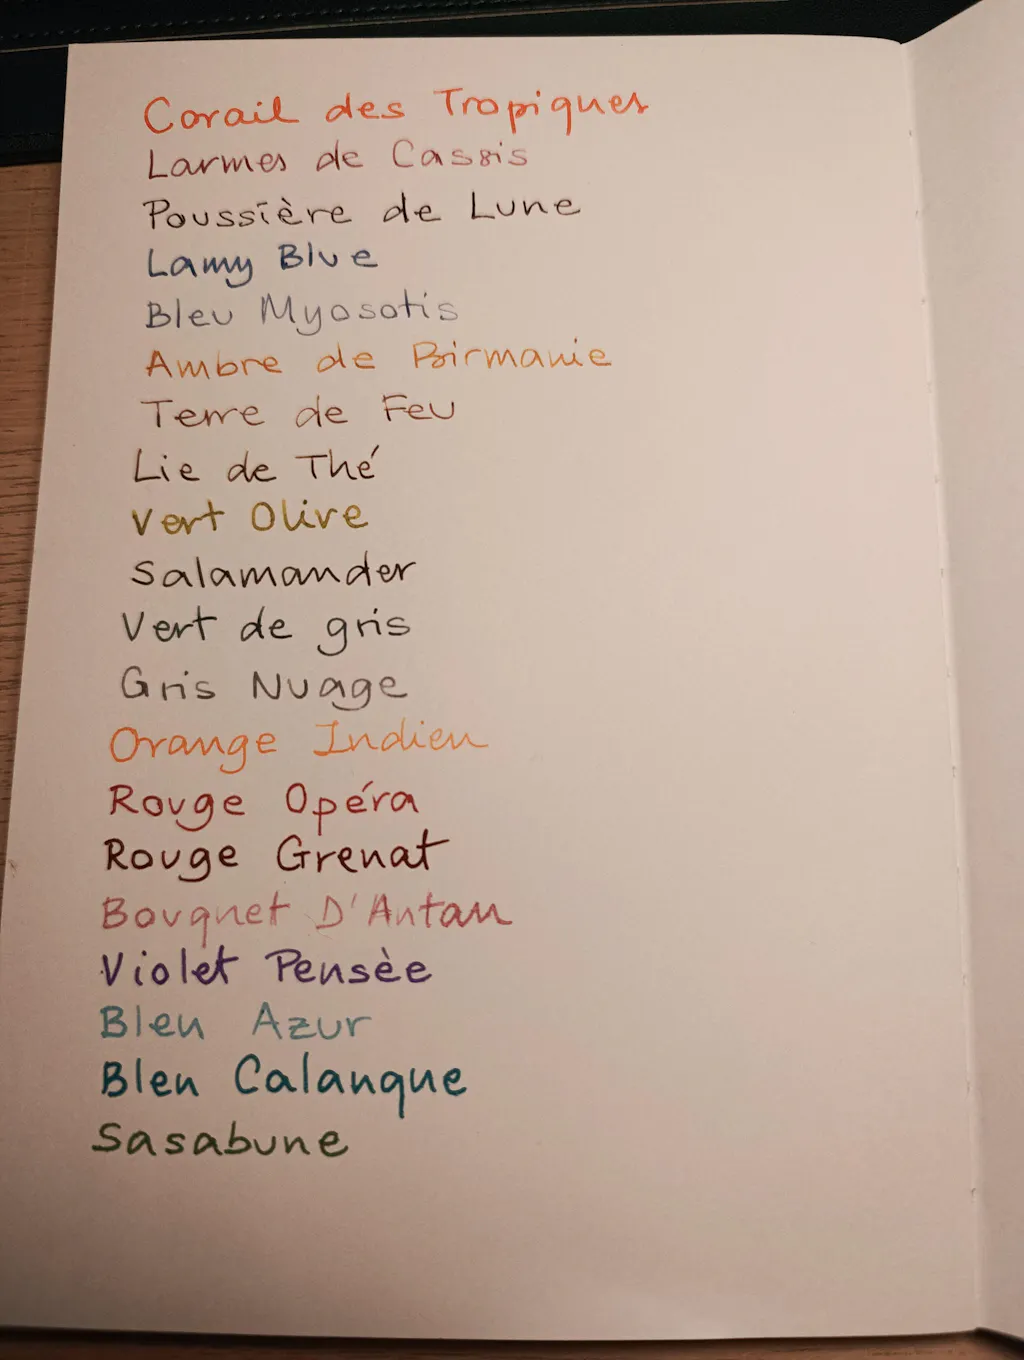 Corail des Tropiques
Larmes de Cassis
Poussière de Lune
Lamy Blue
Bleu Myosotis
Ambre de Birmanie
Terre de Feu
Lie de Thé
Vert Olive
Salamander
Vert de gris
Gris Nuage
Orange Indien
Rouge Opéra
Rouge Grenat
Bouquet D'Antan
Violet Pensèe
Bleu Azur
Bleu Calanque
Sasabune